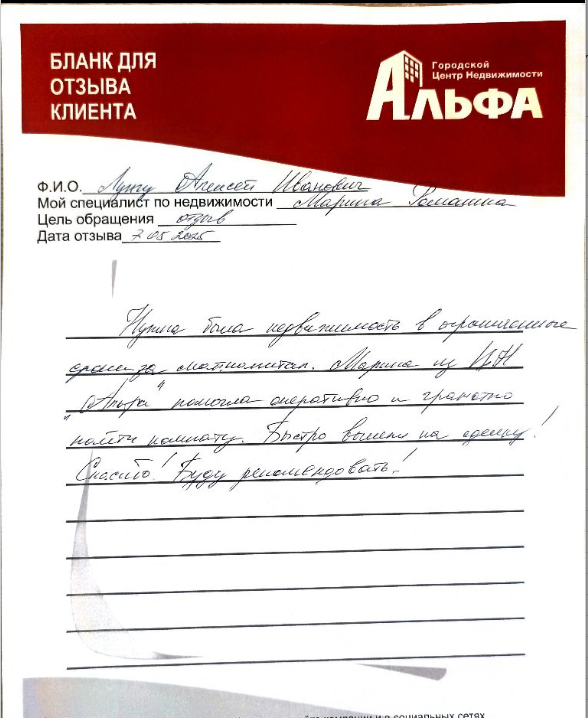 БЛАНК ДЛЯ
ОТЗЫВА
КЛИЕНТА
Городской
Центр Недвижимости
АЛЬФА
Ф.И.О. Лунгу Алексей Иванович
Мой специалист по недвижимости Марина Романина
Цель обращения отзыв
Дата отзыва 7 05 2025
Нужна была недвижимость в ограниченные
сроки за маткапитал. Марина из ЦН
"Альфа" помогла оперативно и грамотно
найти комнату. Быстро вышли на сделку!
Спасибо! Буду рекомендовать!
компании и в социальных сетях